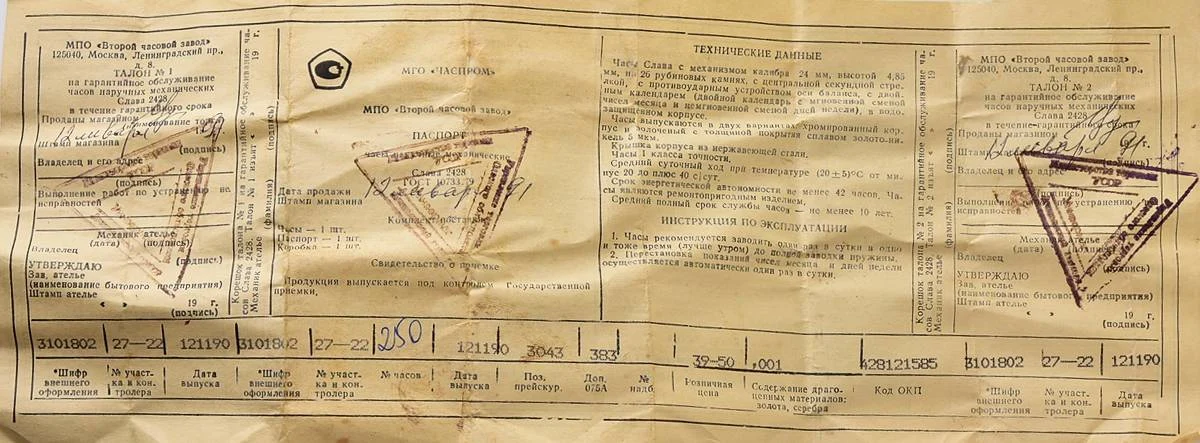 МПО «Второй часовой завод»
125040, Москва, Ленинградский пр.,
д. 8.
ТАЛОН № 1
на гарантийное обслуживание
часов наручных механических
Слава 2428
в течение гарантийного срока
Проданы магазином
Штамп магазина
(подпись)
Владелец и его адрес
(подпись)
Выполнение работ по устранению не
исправностей
Механик ателье
(дата) (подпись)
Владелец
(подпись)
УТВЕРЖДАЮ
Зав. ателье
(наименование бытового предприятия)
Штамп ателье
« » 19 г.
(подпись)
Корешок талона № 1 на гарантийное обслуживание ча-
сов Слава 2428. Талон № 1 изъят « » 19 г.
Механик ателье (фамилия) (подпись)
МГО «ЧАСПРОМ»
МПО «Второй часовой завод»
ПАСПОРТ
часы наручные механические
Слава 2428
ГОСТ 10733.79
Дата продажи
Штамп магазина
91
Комплект поставки
Часы — 1 шт.
Паспорт — 1 шт.
Коробка — 1 шт.
Свидетельство о приемке
Продукция выпускается под контролем Государственной
приемки.
ТЕХНИЧЕСКИЕ ДАННЫЕ
Часы Слава с механизмом калибра 24 мм, высотой 4,85
мм, на 26 рубиновых камнях, с центральной секундной стре-
лкой, с противоударным устройством оси баланса, с двой-
ным календарем (двойной календарь с мгновенной сменой
чисел месяца и немгновенной сменой дней недели) в водо-
защищенном корпусе.
Часы выпускаются в двух вариантах: хромированный кор-
пус и золоченый с толщиной покрытия сплавом золото-ни-
кель 5 мкм.
Крышка корпуса из нержавеющей стали.
Часы 1 класса точности.
Средний суточный ход при температуре (20±5)°С от ми-
нус 20 до плюс 40 с/сут.
Срок энергетической автономности не менее 42 часов. Ча-
сы являются ремонтопригодным изделием.
Средний полный срок службы часов — не менее 10 лет.
ИНСТРУКЦИЯ ПО ЭКСПЛУАТАЦИИ
1. Часы рекомендуется заводить один раз в сутки в одно
и тоже время (лучше утром) до полной заводки пружины.
2. Перестановка показаний чисел месяца и дней недели
осуществляется автоматически один раз в сутки.
Корешок талона № 2 на гарантийное обслуживание ча-
сов Слава 2428. Талон № 2 изъят « » 19 г.
Механик ателье (фамилия) (подпись)
МПО «Второй часовой завод»
125040, Москва, Ленинградский пр.,
д. 8.
ТАЛОН № 2
на гарантийное обслуживание
часов наручных механических
Слава 2428
в течение гарантийного срока
Проданы магазином
Штамп магазина
91 г.
(подпись)
Владелец и его адрес
(подпись)
Выполнение работ по устранению
неисправностей
Механик ателье
(дата) (подпись)
Владелец
(подпись)
УТВЕРЖДАЮ
Зав. ателье
(наименование бытового предприятия)
Штамп ателье
« » 19 г.
(подпись)
3101802 27—22 121190 3101802 27—22 250 121190 3043 383 39-50 ,001 428121585 3101802 27—22 121190
*Шифр внешнего оформления
№ участ-ка и кон. тролера
Дата выпуска
*Шифр внешнего оформления
№ участ-ка и кон. тролера
№ часов
Дата выпуска
Поз. прейскур.
Доп. 075А
№ надб.
Розничная цена
Содержание драго-ценных материалов: золота, серебра
Код ОКП
*Шифр внешнего оформления
№ участ-ка и кон. тролера
Дата выпуска